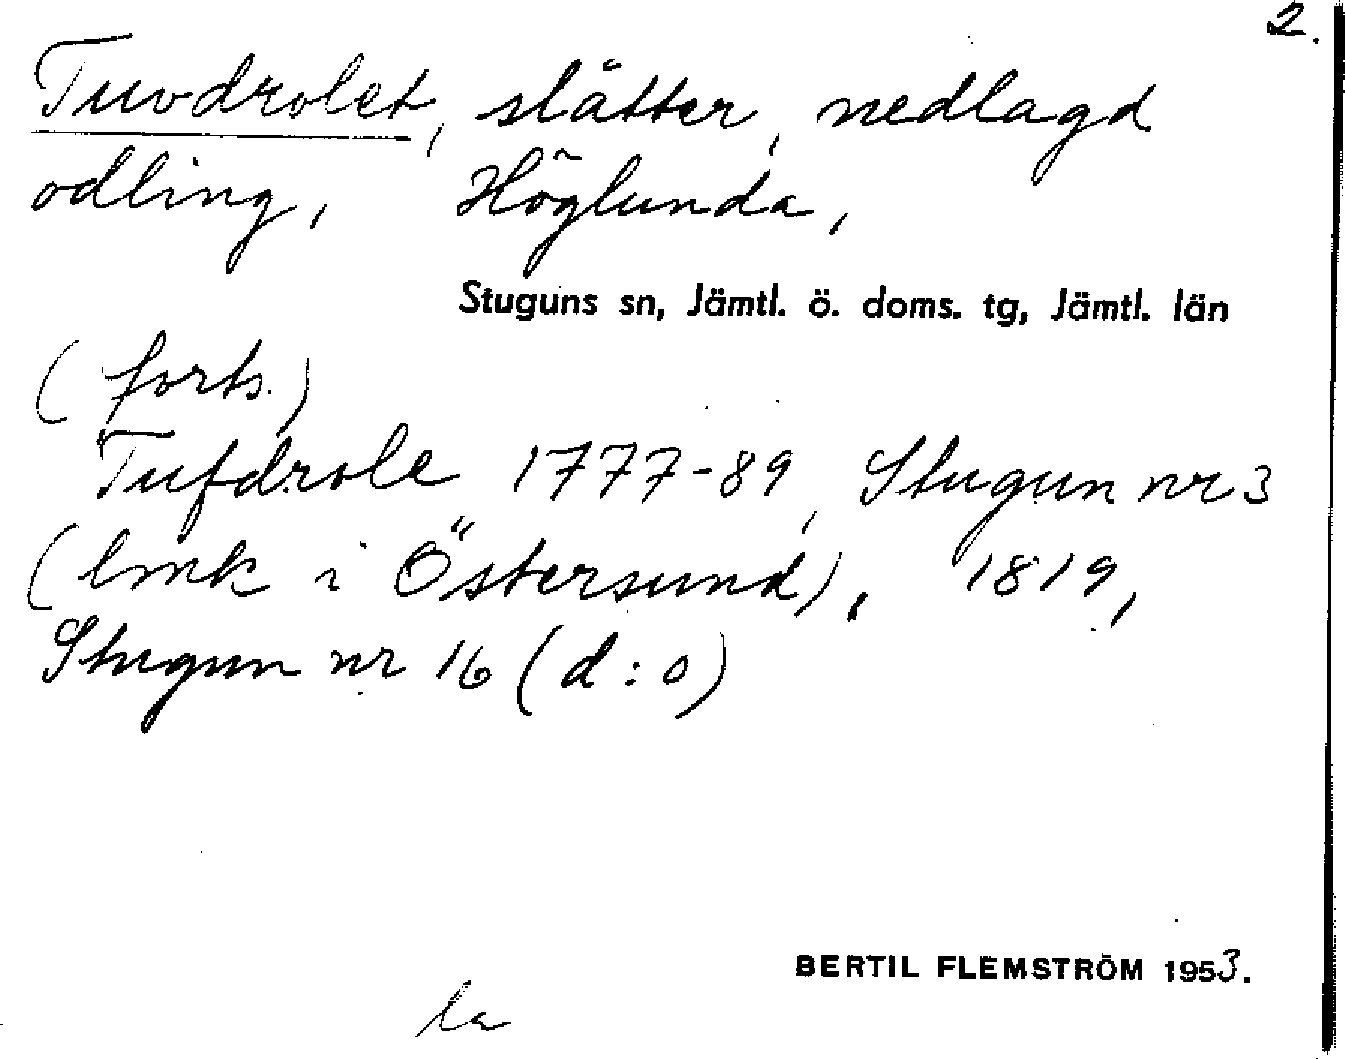 2.
Tuvdrolet, slåtter, nedlagd
odling, Höglunda,
Stuguns sn, Jämtl. ö. doms. tg, Jämtl. län
(forts.)
Tufdrole 1777-89, Stugun nr 3
(lmk i Östersund), 1819,
Stugun nr 16 (d:o)
BERTIL FLEMSTRÖM 1953.
la